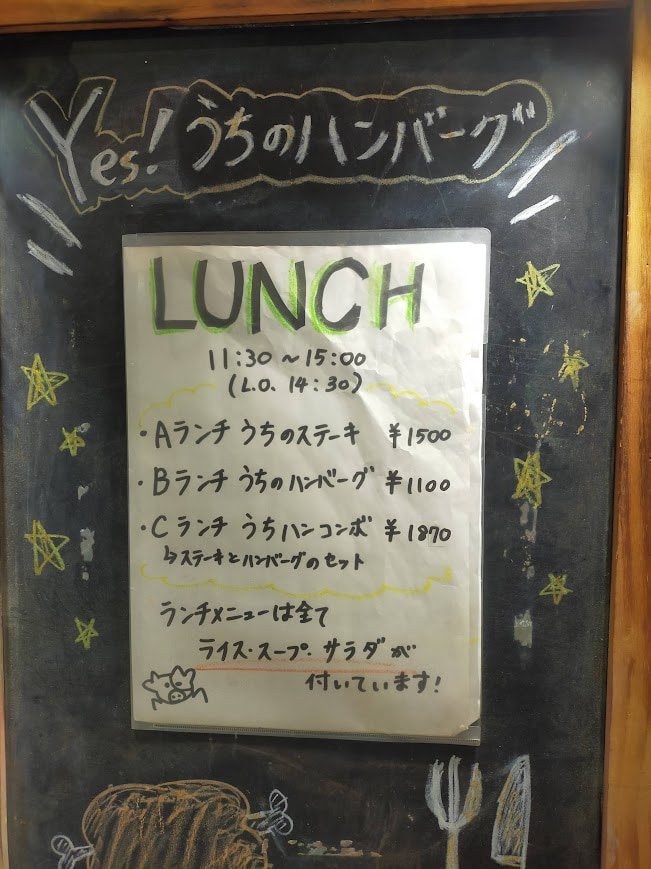 Yes! うちのハンバーグ
LUNCH
11:30～15:00
(L.O. 14:30)
・Aランチ うちのステーキ ¥1500
・Bランチ うちのハンバーグ ¥1100
・Cランチ うちハンコンボ ¥1870
↳ステーキとハンバーグのセット
ランチメニューは全て
ライス・スープ・サラダが
付いています!